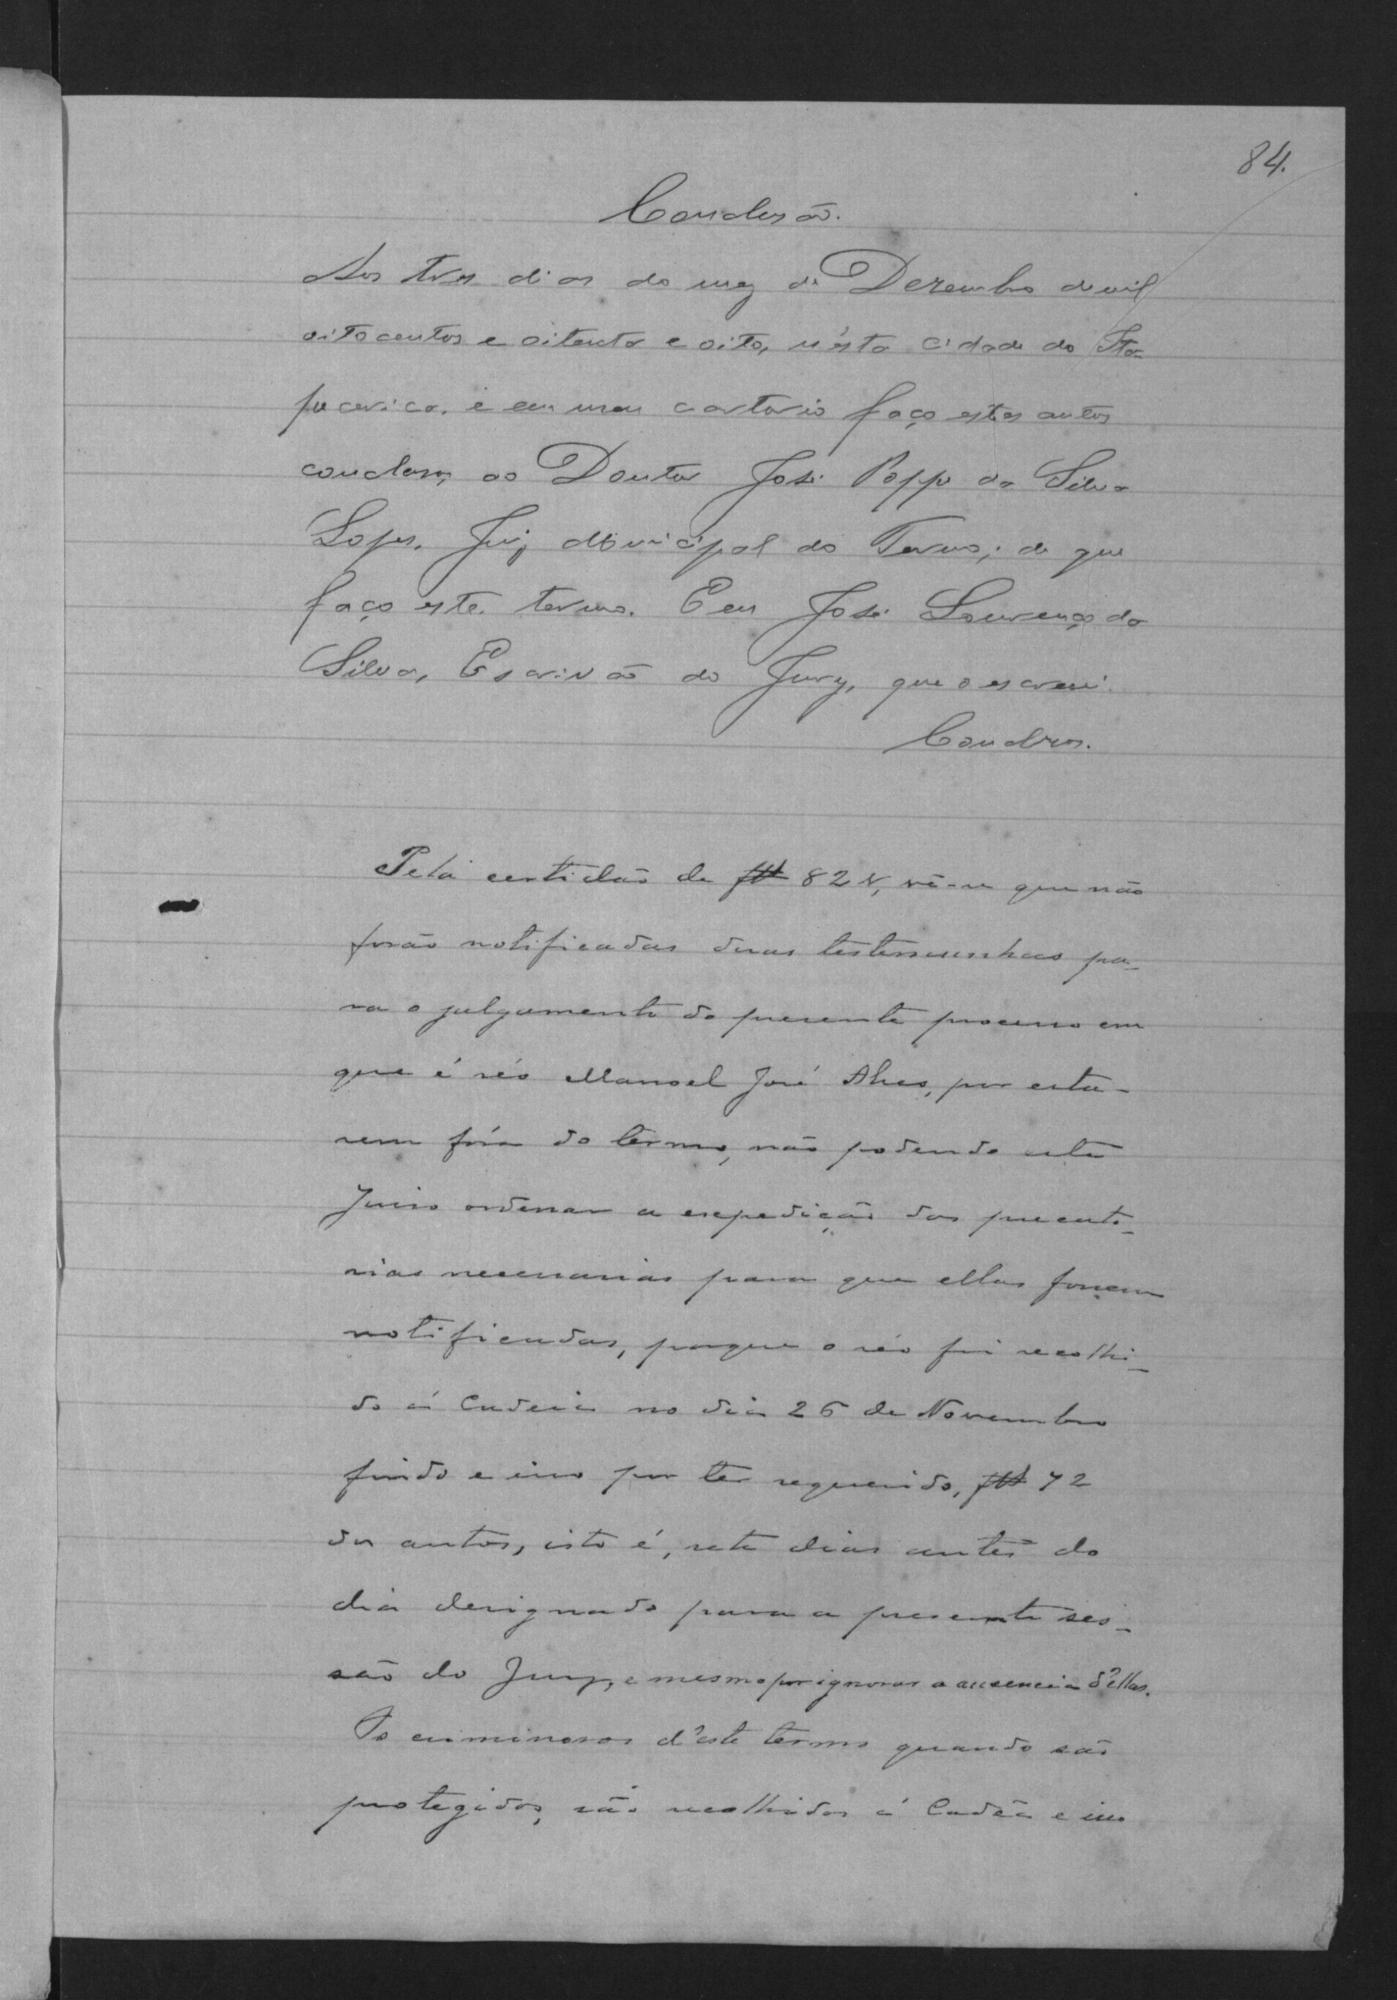 84.
Conclusão.
Aos tres dias do mez de Dezembro de mil
oitocentos e oitenta e oito, n'ésta Cidade de Ita-
pecerica, e em meu cartorio faço estes autos
conclusos ao Doutor José Poppe da Silva
Lopes, Juiz Municipal do Termo; de que
faço este termo. E eu José Lourenço da
Silva, Escrivão do Jury, que o escrevi.
Conclusos.
Pela certidão de fls 82 v, vê-se que não
forão notificadas duas testemunhas pa-
ra o julgamento do presente processo em
que é réo Manoel José Alves, por esta-
rem fóra do termo, não podendo este
Juiso ordenar a expedição das precato-
rias necessarias para que ellas fossem
notificadas, porque o réo foi recolhi-
do á Cadeia no dia 26 de Novembro
findo e isso por ter requerido, fls 72
dos autos, isto é, sete dias antes do
dia designado para a presente ses-
são do Jury, e mesmo por ignorar a ausencia d'ellas.
Os criminosos d'este termo quando são
protegidos, são recolhidos á Cadêa e isso